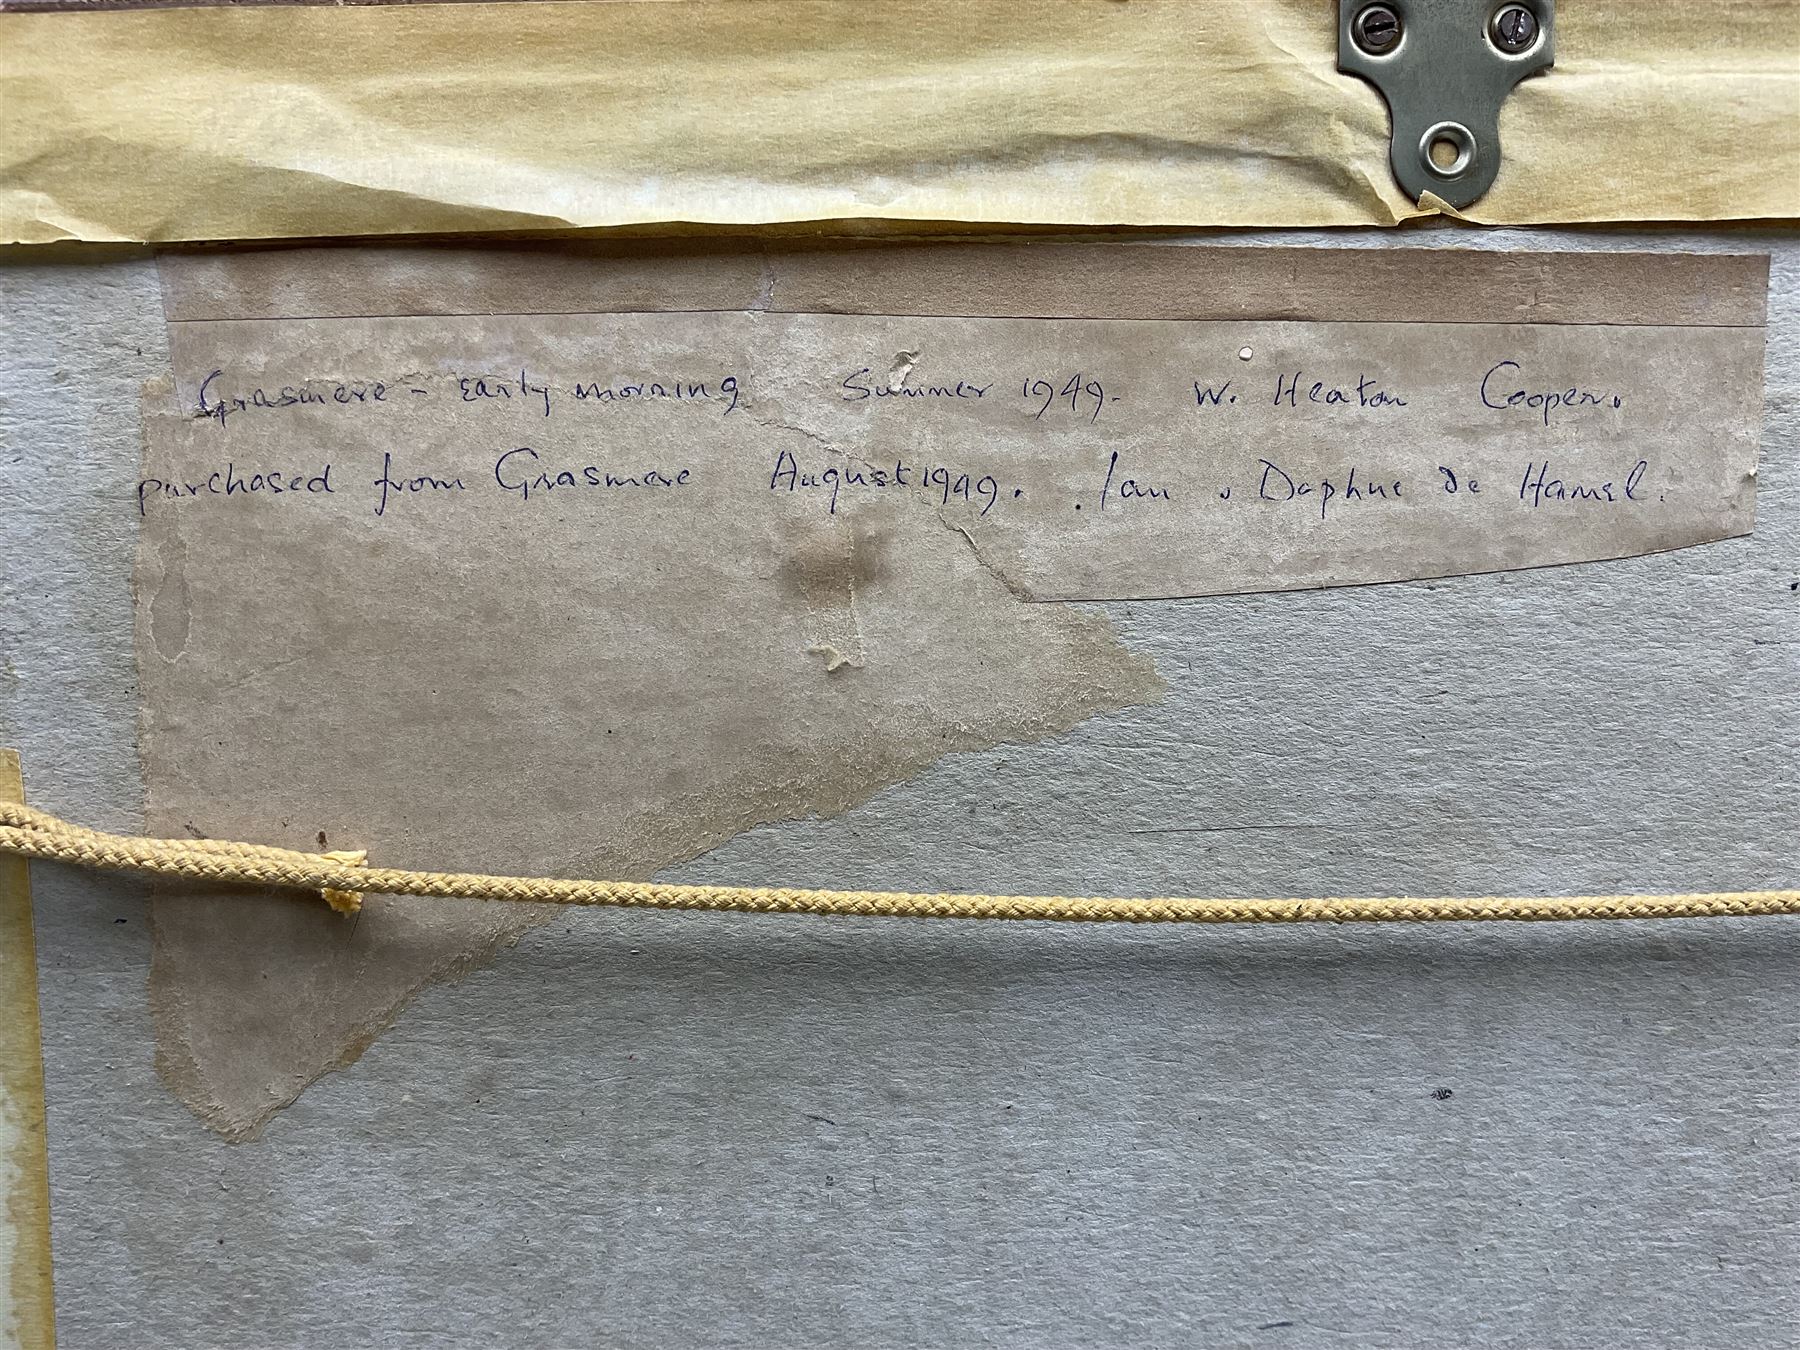 Grasmere - Early morning Summer 1949. W. Heaton Cooper.
purchased from Grasmere August 1949. Ian & Daphne de Hamel.